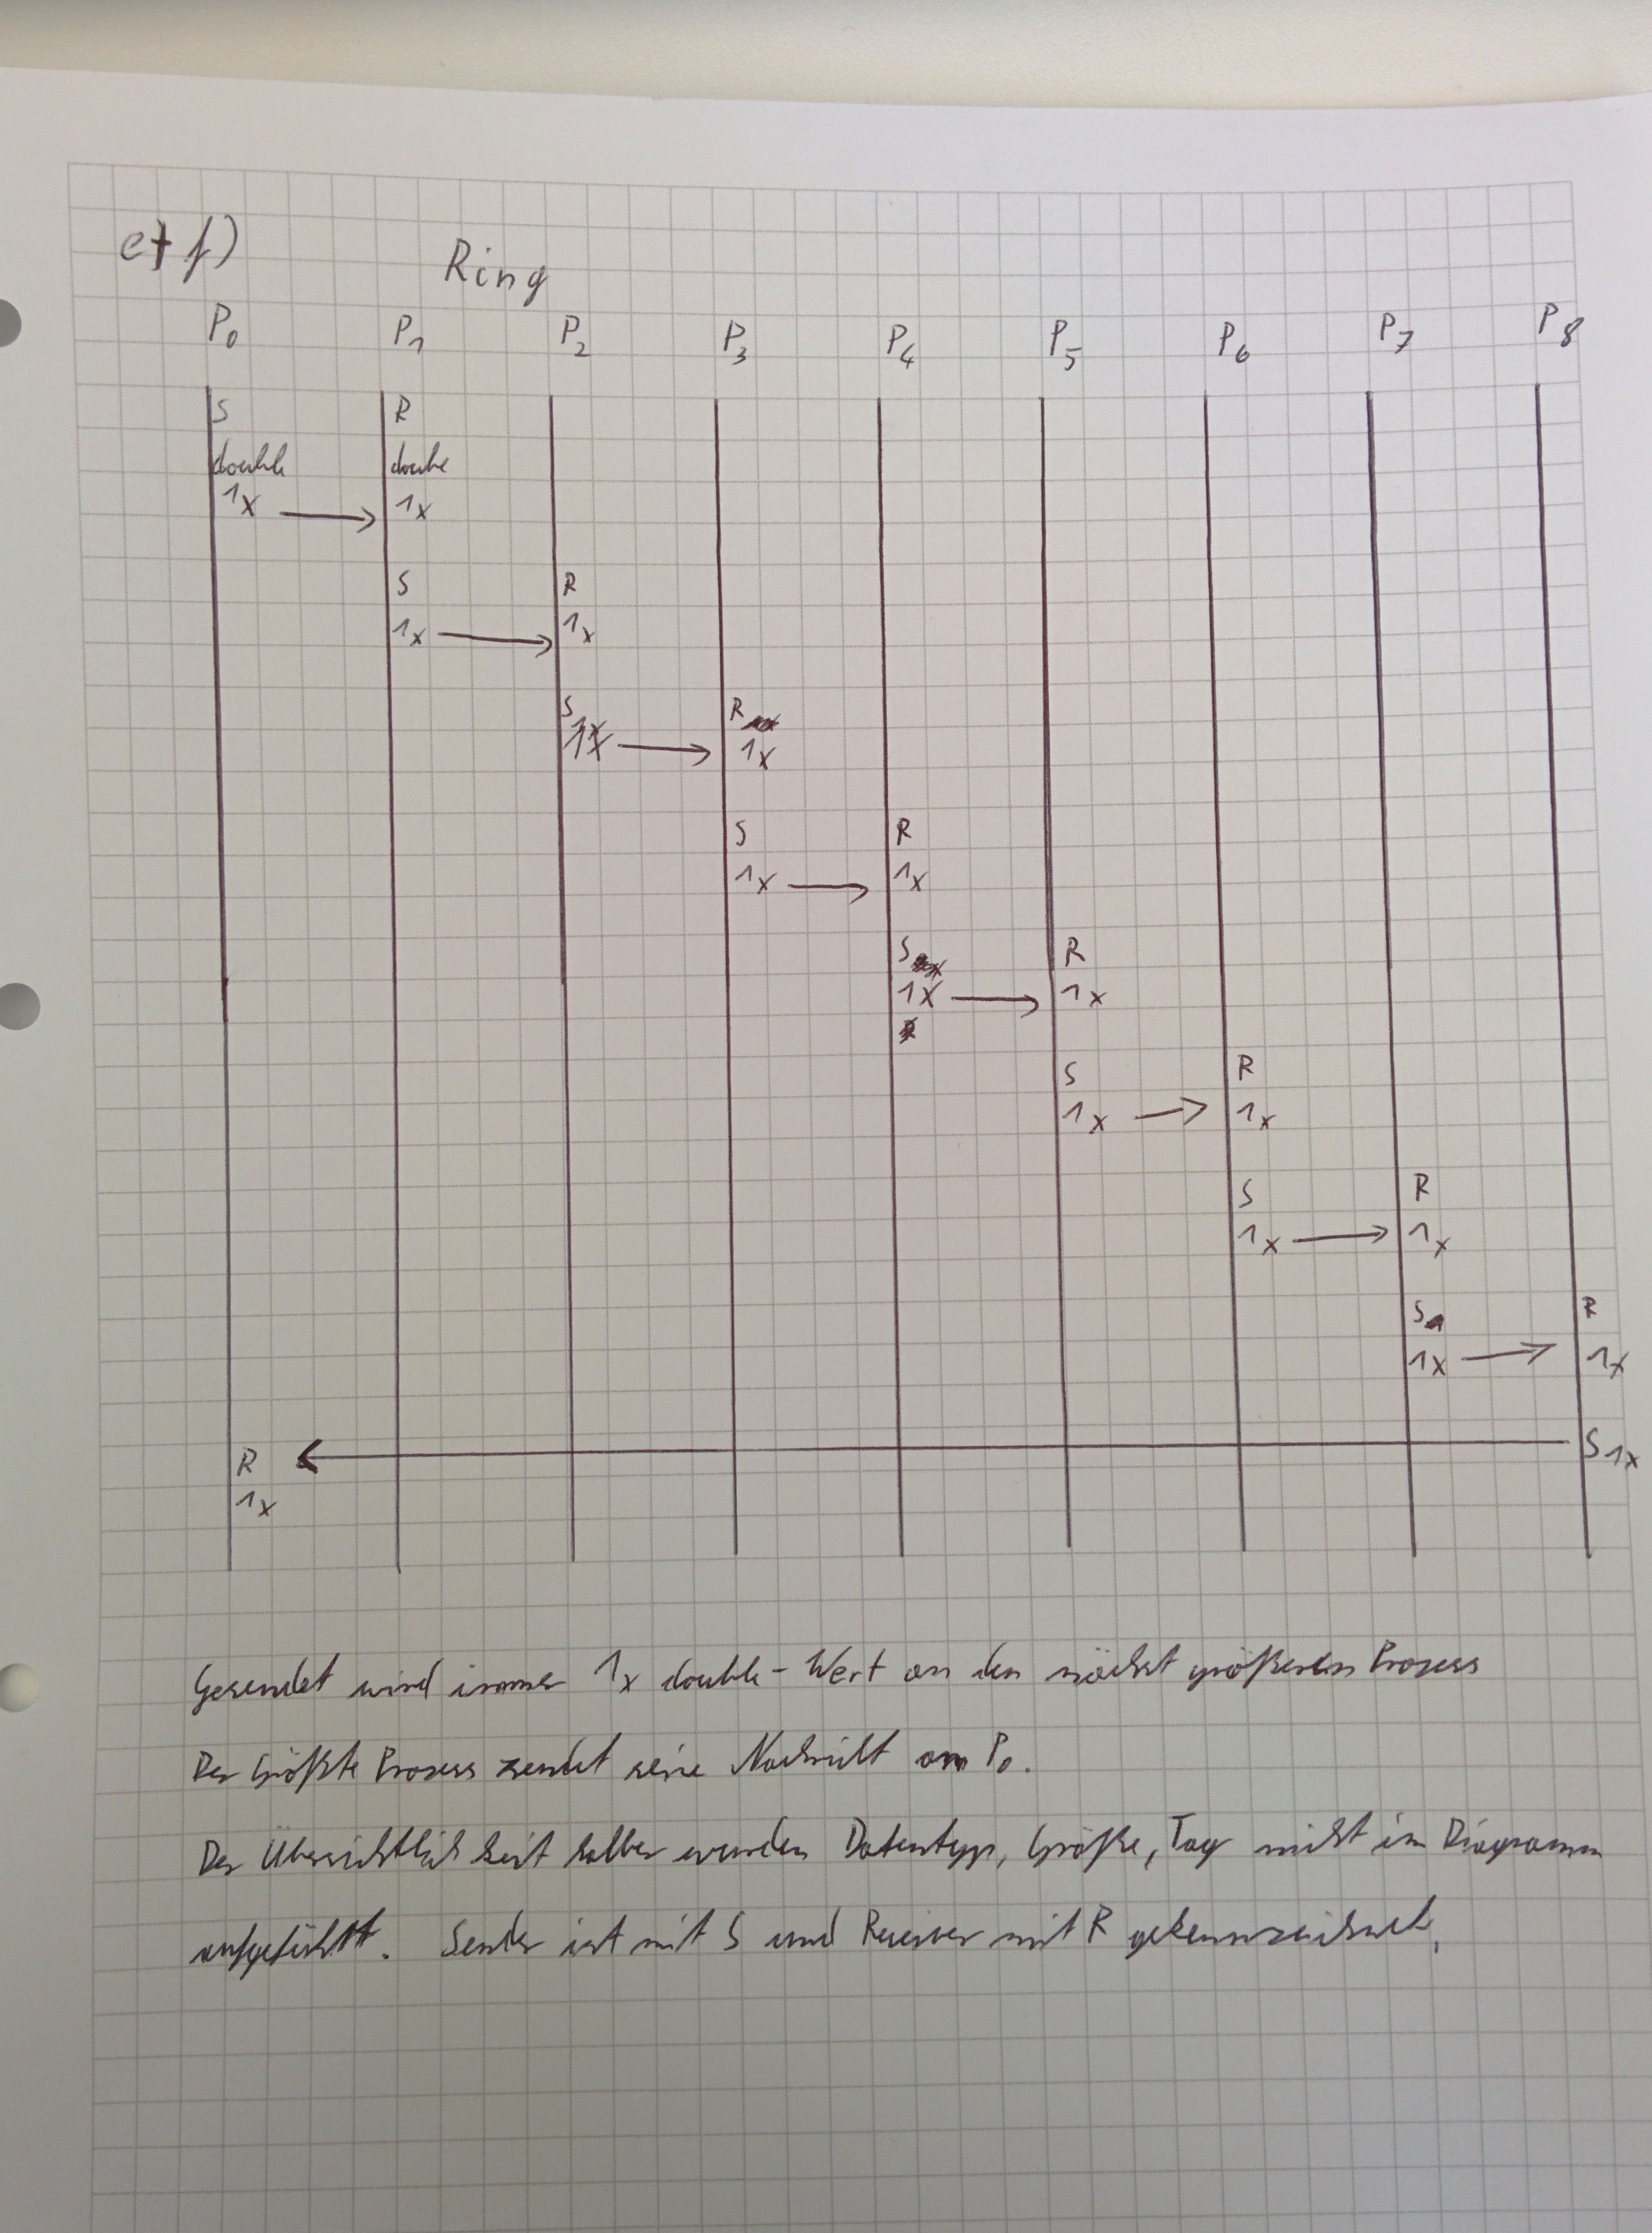 e+f)
Ring
P0 P1 P2 P3 P4 P5 P6 P7 P8
S R
double double
1x 1x
S R
1x 1x
S R
1x 1x
S R
1x 1x
S R
1x 1x
S R
1x 1x
S R
1x 1x
S R
1x 1x
R S 1x
1x
Gesendet wird immer 1x double-Wert an den nächst größeren Prozess
Der Größte Prozess sendet seine Nachricht an P0.
Der Übersichtlichkeit halber wurden Datentyp, Größe, Tag nicht im Diagramm
aufgeführt. Sender ist mit S und Receiver mit R gekennzeichnet.